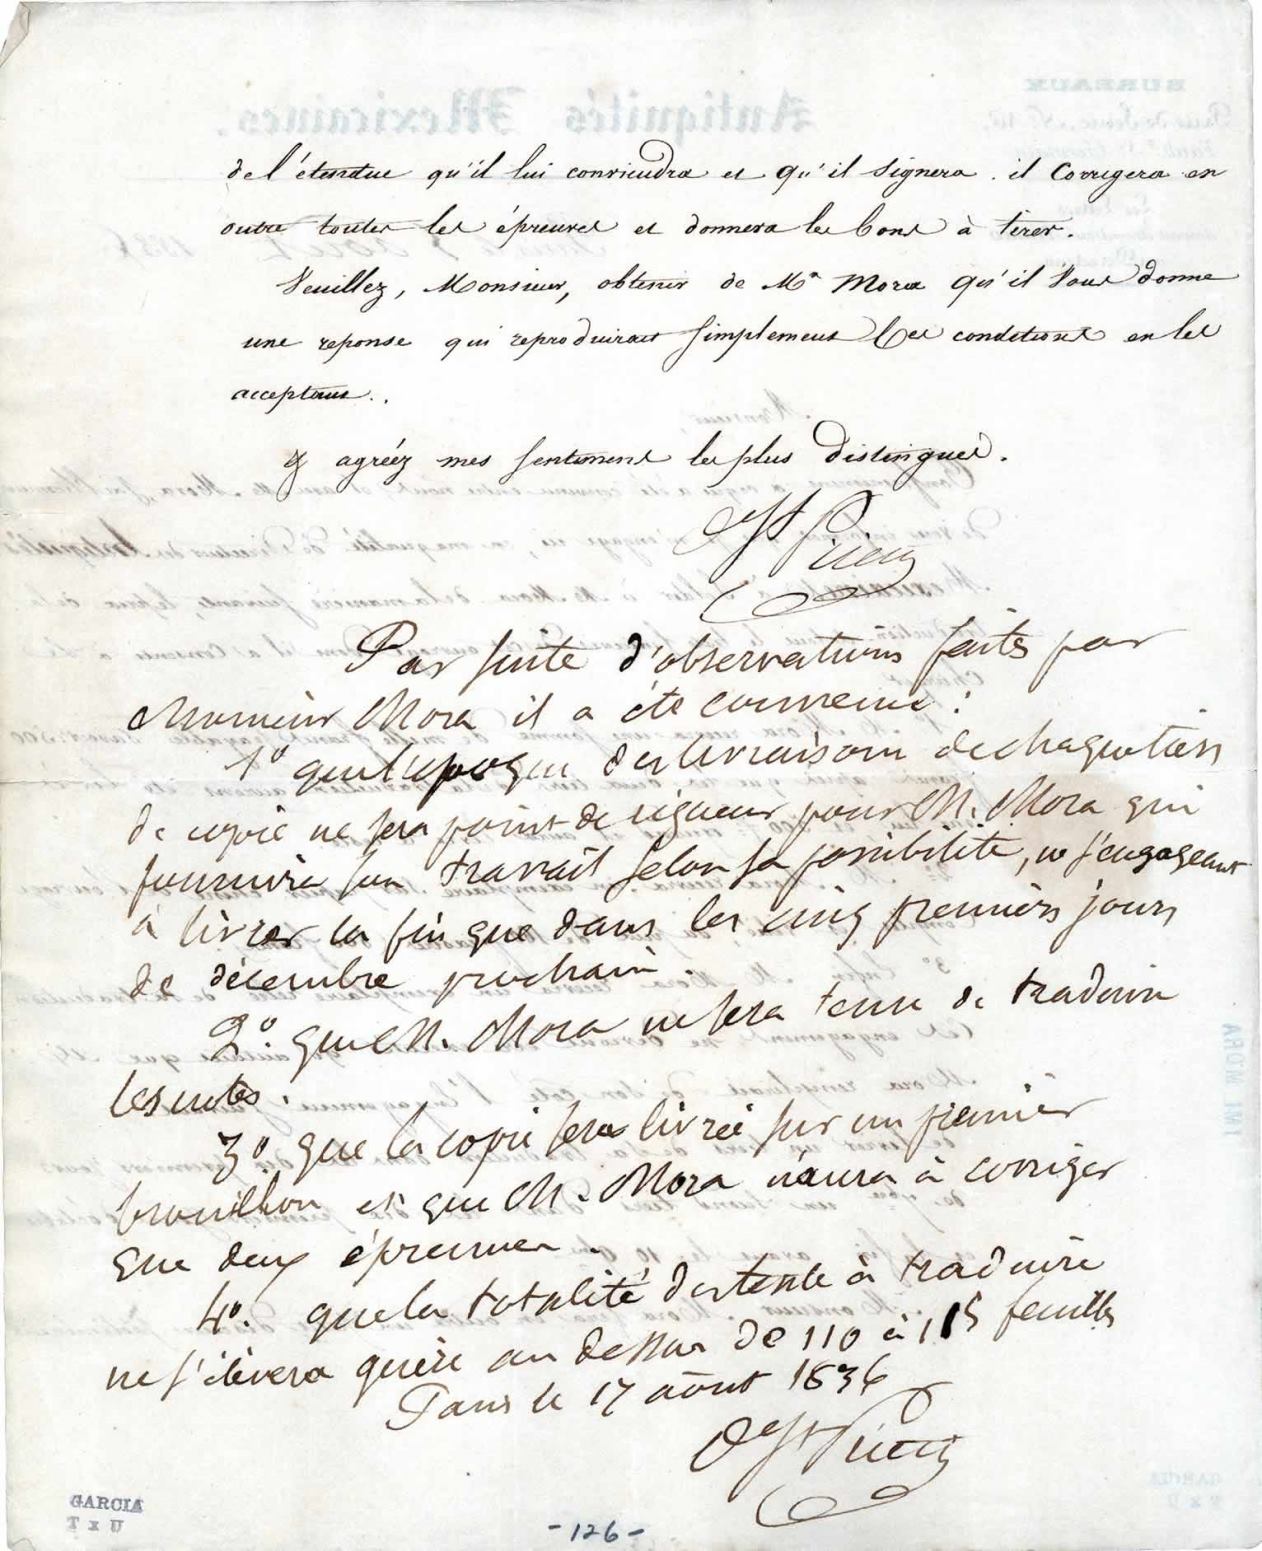 de l'étendue qu'il lui conviendra et qu'il signera. il Corrigera en
outre toutes les épreuves et donnera les bons à tirer.
Veuillez, Monsieur, obtenir de Mr Mora qu'il vous donne
une reponse qui reproduirait simplement ces conditions en les
acceptant.
& agréez mes sentiments les plus distingués.
De St Priest
Par suite d'observations faites par
Monsieur Mora il a été convenu :
1º que l'époque des livraisons de chaque tiers
de copie ne sera point de rigueur pour M. Mora qui
fournira son travail selon sa possibilité, ne s'engageant
à livrer la fin que dans les cinq premiers jours
de décembre prochain.
2º. que M. Mora ne sera tenu de traduire
les notes.
3º. que la copie sera livrée sur un premier
brouillon et que M. Mora n'aura à corriger
que deux épreuves.
4º. que la totalité du texte à traduire
ne s'élèvera guère au dessus de 110 à 115 feuilles
Paris le 17 août 1836
De St Priest
GARCIA
T x U
-126-